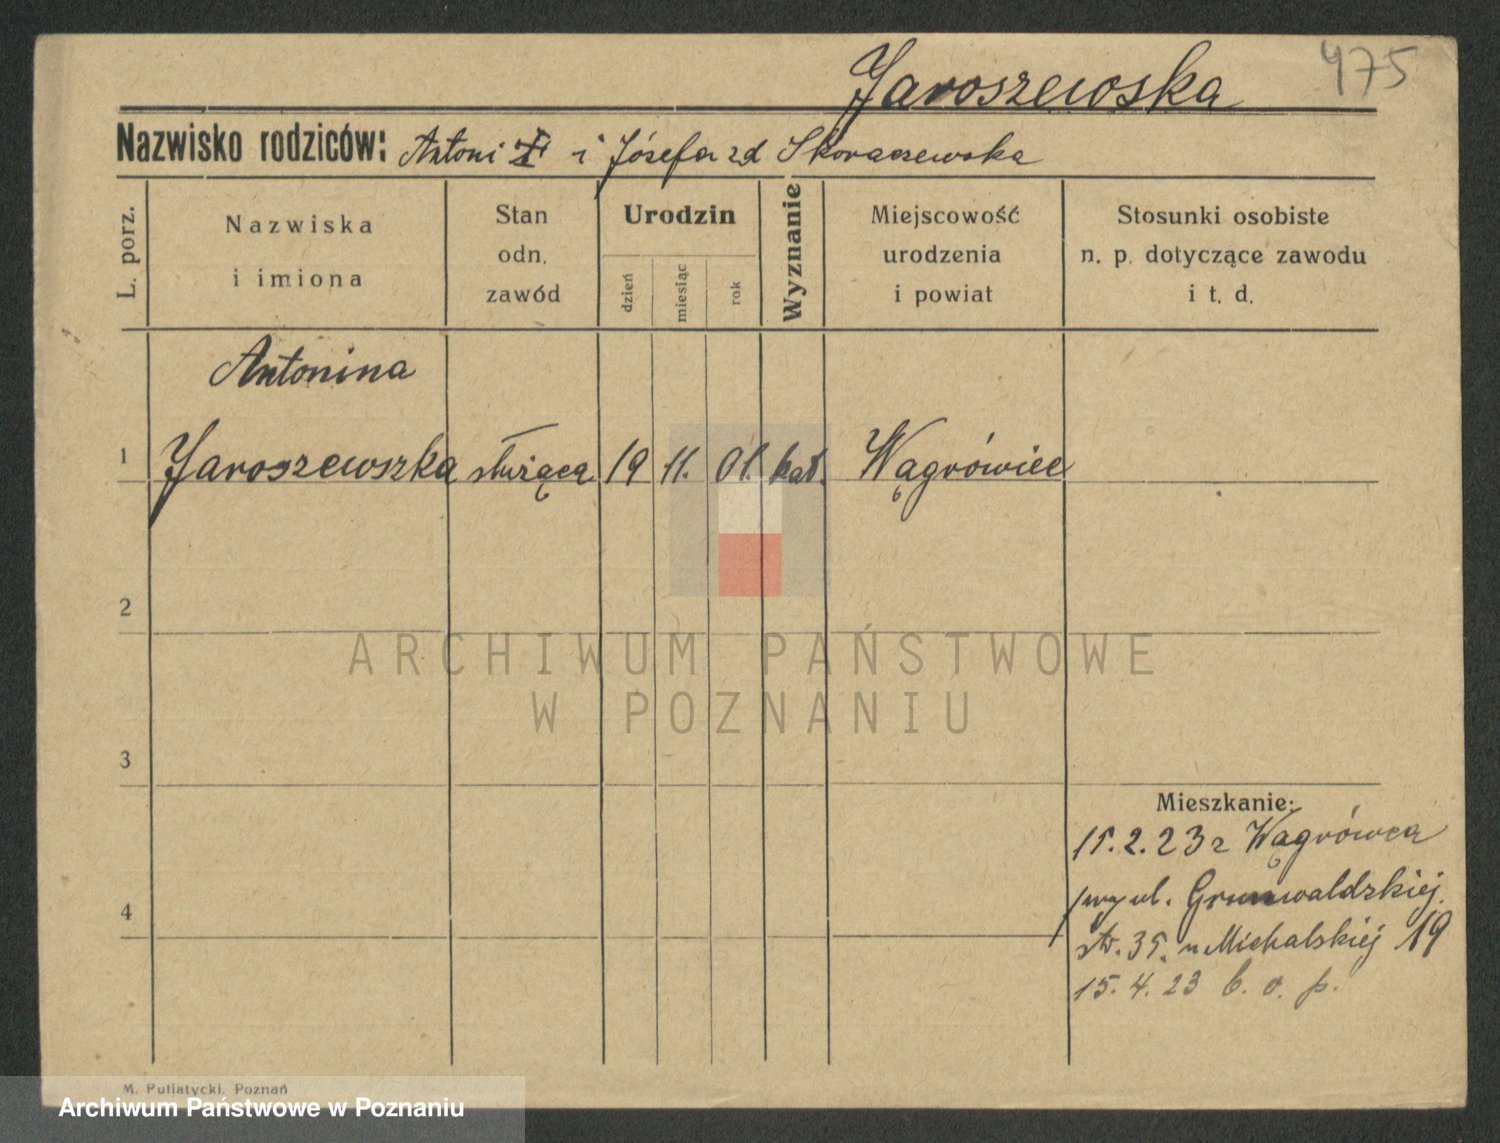 Jaroszewska
475
Nazwisko rodziców: Antoni i Józefa zd Skoraszewska
L. porz.
Nazwiska
i imiona
Stan
odn.
zawód
Urodzin
dzień
miesiąc
rok
Wyznanie
Miejscowość
urodzenia
i powiat
Stosunki osobiste
n. p. dotyczące zawodu
i t. d.
Antonina
1 Jaroszewszka służąca 19 11. 01. kat. Wągrówiec
2
ARCHIWUM PAŃSTWOWE
W POZNANIU
3
Mieszkanie:
15.2.23 z Wągrówca
przy ul. Grunwaldzkiej.
4
str. 35. u Michalskiej 19
15. 4. 23 b. o. p.
M. Putiatycki, Poznań
Archiwum Państwowe w Poznaniu